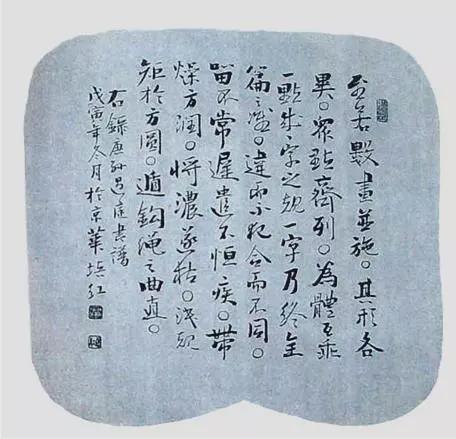 至若數畫並施。其形各
異。眾點齊列。為體互乖
一點成字之規一字乃終
篇之準。違而不犯合而不同。
留不常遲遣不恒疾。帶
燥方潤。將濃遂枯。泯規
矩於方圓。遁鈎繩之曲直。
右錄唐孫過庭書譜
戊寅年冬月於京華 紅